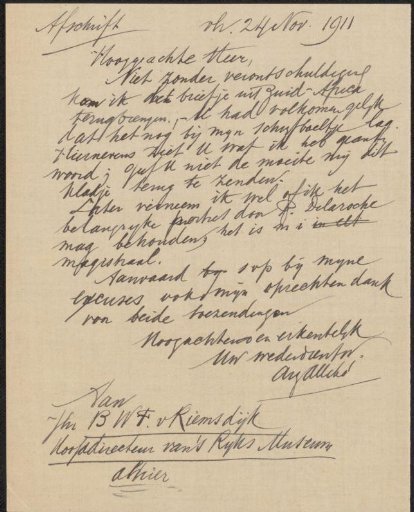 Afschrift vh. 24 Nov. 1911
Hooggeachte Heer,
Niet zonder verontschuldiging
kan ik het briefje uit Zuid-Africa
terugbrengen, - U had volkomen gelijk
dat het nog bij mijn schrijfboeltje lag.
Hiernevens ziet U wat ik heb geant-
woord; geef U niet de moeite mij dit
kladje terug te zenden.
Later verneem ik wel of ik het
belangrijke portret door P. Delaroche
mag behouden, het is m i
magistraal.
Aanvaard svp bij mijne
excuses ook mijn oprechten dank
voor beide toezendingen
Hoogachtend en erkentelijk
Uw
Aan
Jhr B W F. v Riemsdijk
Hoofddirecteur van 's Rijks Museum
alhier